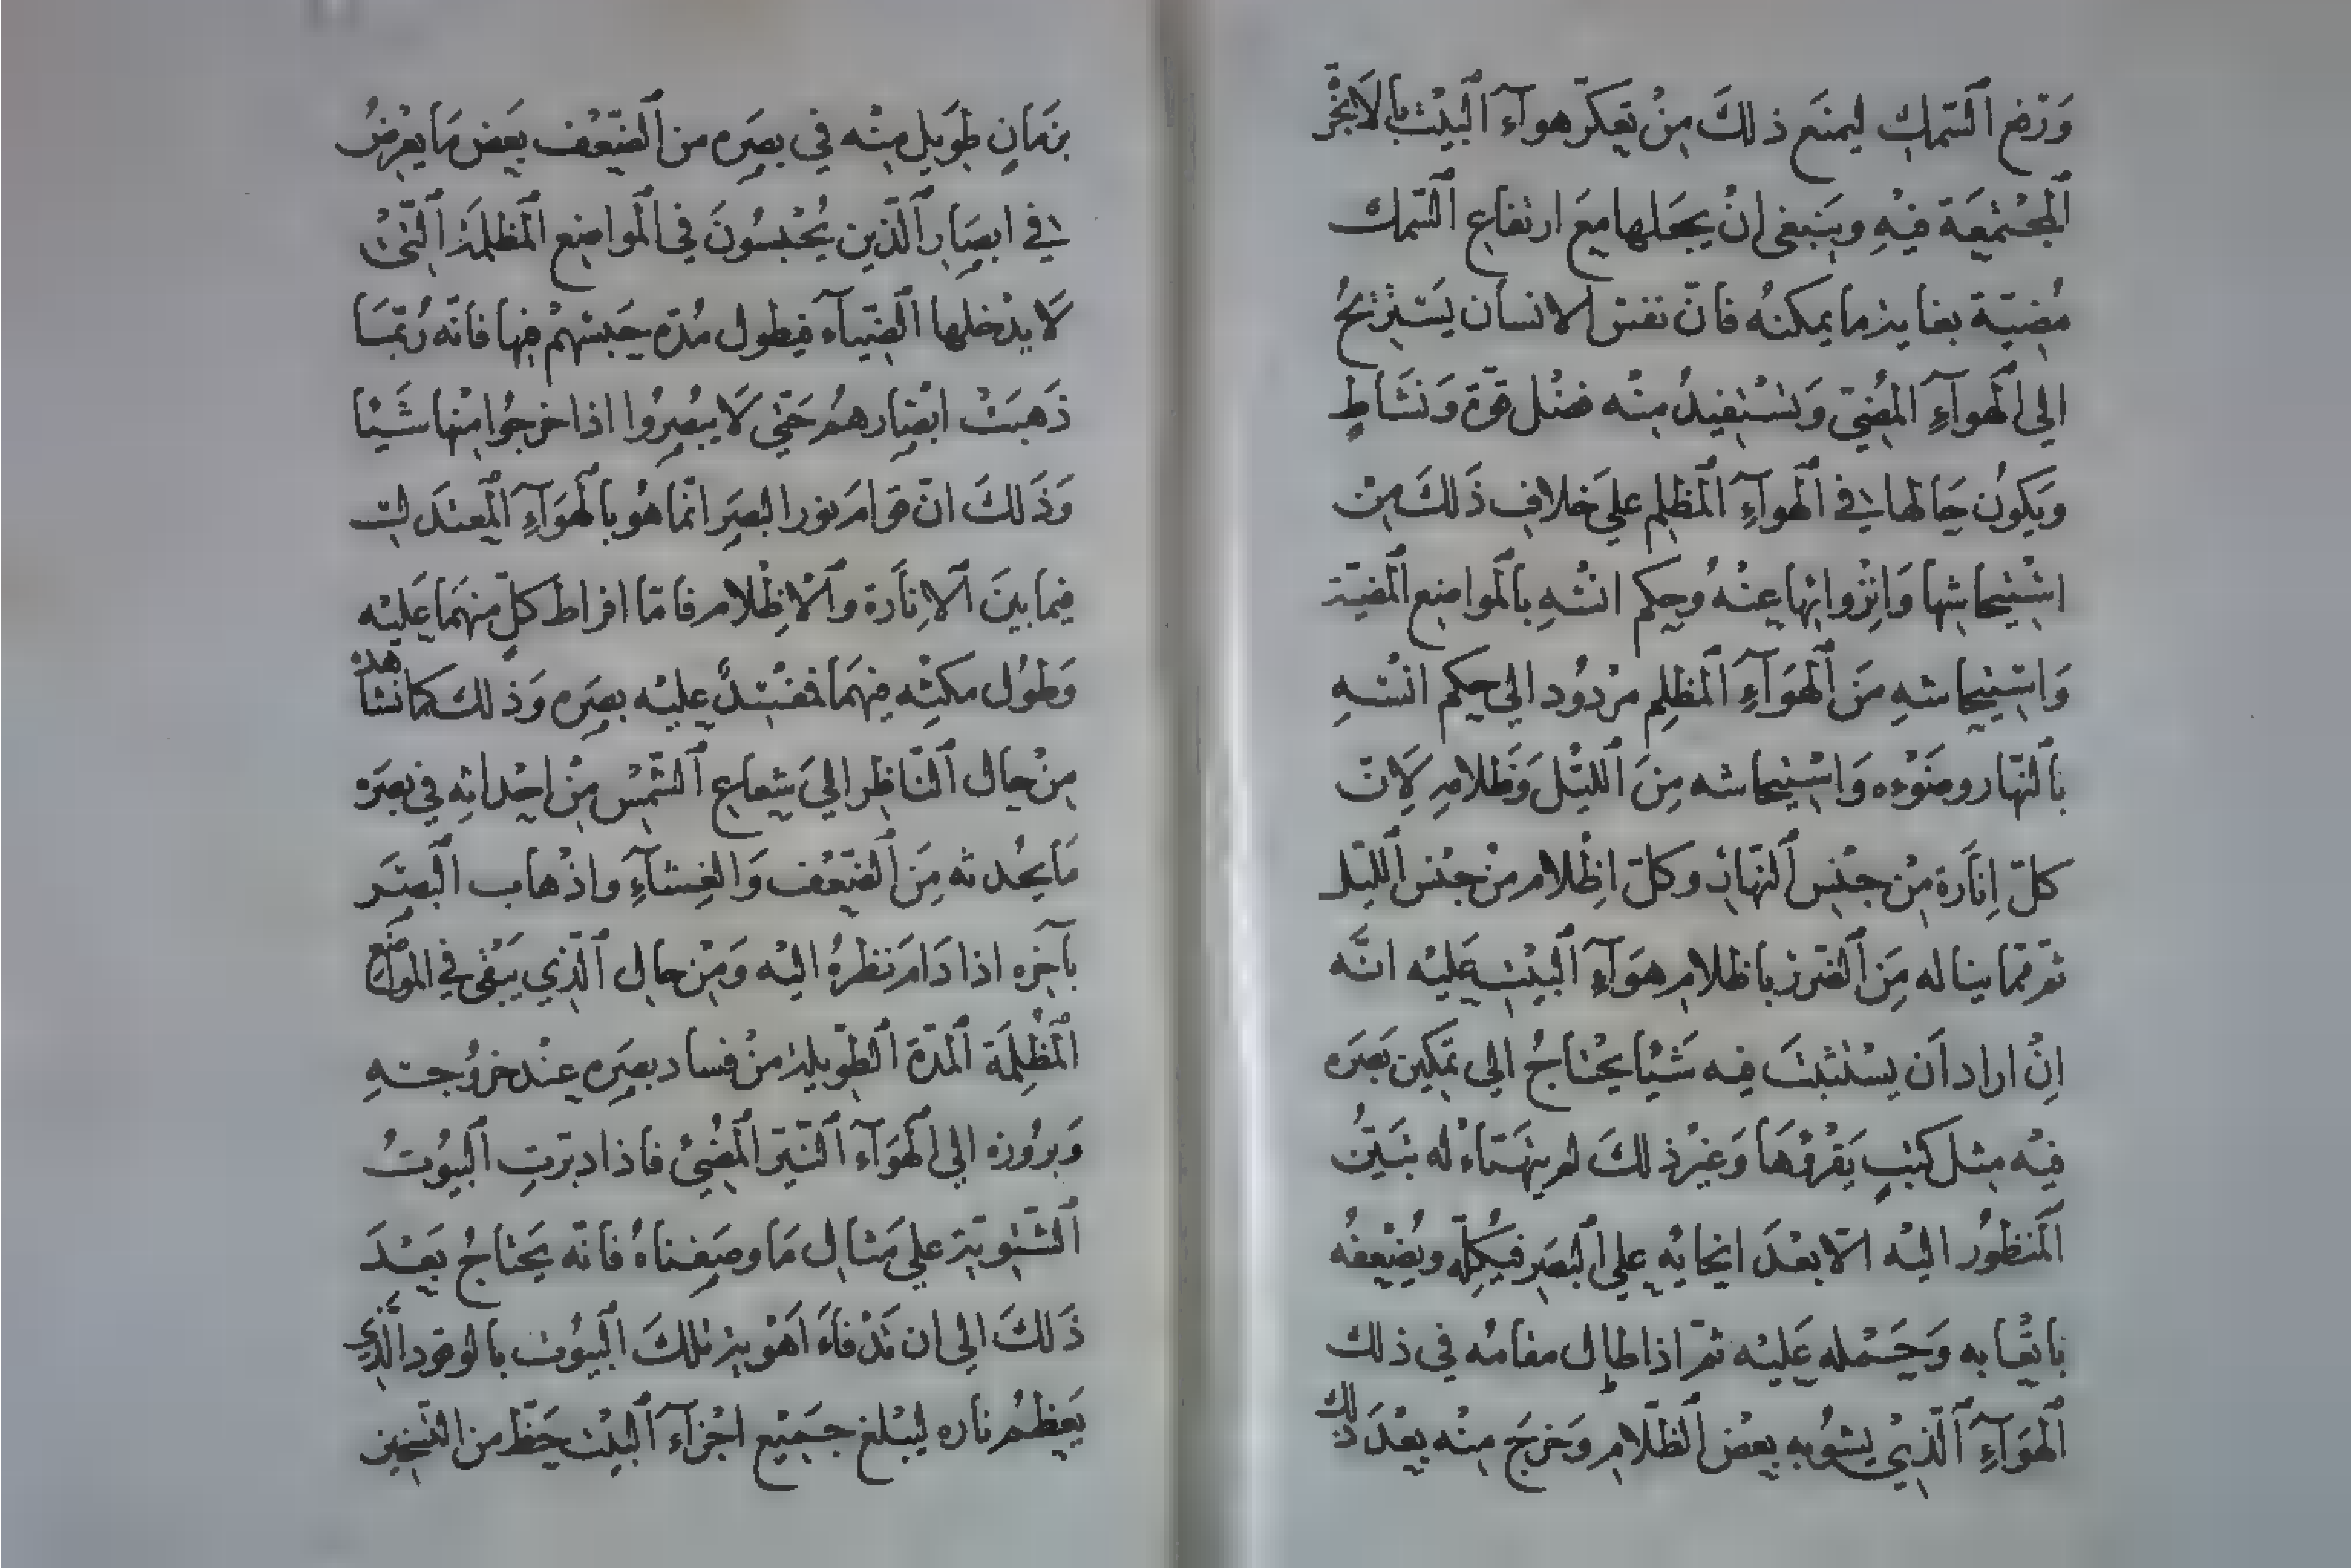 وَرَفع ٱلسّمك ليمنَع ذلكَ مِنْ تعكّر هوآءِ ٱلبَيْت بالاَبْخرَة
ٱلمجْتمعَة فيْهِ وَينبغى انْ يجعَلها مَع ارتفاع ٱلسّمك
مُضيّة بغاية ما يمكنُه فانّ نفسَ الانسان يَسْتريْحُ
الي ٱلهَوآءِ المُضيّ وَتسْتفيدُ منْه فضْل قوّة وَنشَاطٍ
وَيكوُن حَالها في ٱلهوآءِ ٱلمظلِم علي خلافِ ذَلكَ مِن
اسْتيحاشها وَانزوائها عنْهُ وحكم انسْهِ بالموَاضع ٱلمضيّة
وَاستيحاشهِ مَن ٱلهَوَآءِ ٱلمظلِم مرْدوُد الي حكم انسْهِ
بالنّهار وضَوْءه وَاسْتيحاشه مِنَ ٱلليْل وَظلامهِ لاِنّ
كلّ اِنَارة مِنْ جنْسِ ٱلنّهار وكلّ اِظْلام منْ جنْس ٱلليْل
ثمّ ممّا يناله مِنَ ٱلضّرر باظلام هَوَآءِ ٱلبيْت عَليْه انَّه
اِنْ اراد اَن يسْتثبتَ فيه شَيْئا يحْتاجُ الي تمكين بَصَره
فيْه مثل كتبٍ يَقرؤُهَا وَغيْر ذلكَ لم يتهَيّاءْ له تبَيّن
ٱلمَنظوُر اليْه الاّ بعْدَ انحائه علي ٱلبصَر فيُكِلّه ويُضْعفُه
باتعْابه وَحَمْله عَليْه ثمّ اذا طال مقامُه في ذلك
ٱلهَوَآءِ ٱلّذيْ يشوُبه بعْض ٱلظّلام وَخرجَ منْه بعْدَ ذلك
بزمَانٍ طوَيل منْه في بصَره من ٱلضّعْف بعَض مَا يعْرضُ
في ابصَار ٱلّذين يُحْبسُونَ في ٱلموَاضع ٱلمَظلمَة ٱلّتىْ
لاَ يدْخلها ٱلضّيآء فيطول مُدّة حَبسْهمْ فيها فانّه رُبّمَا
ذَهبَتْ ابْصَارهمُ حَتّي لاَ يبْصِروُا اذا خرجوُا منْها شَيْئا
وَذَلكَ انّ قوَامَ نور البصَر انّما هُو بالهَوَآءِ ٱلمعْتَدَل
فيما بينَ ٱلاِنَارة وَٱلاِظْلام فامّا افراط كلٍّ منهَما عَليْه
وَطوُل مكثه فيهمَا عليْه بصَره وَذلك كما نشاهده
مِنْ حال ٱلنّاظر الي شعاع ٱلشّمْس مِنْ احْداثهِ في بصَره
مَا يحُدثه مِنَ ٱلضّعْف وَالغِشآءِ واذْهاب ٱلبَصَر
بآخَره اذا دَامَ نظرهُ اليْه وَمِنْ حال ٱلّذي يَبْقى في الموَاضع
ٱلمُظْلِمَة ٱلمدّة ٱلطّويلة منْ فسَاد بصَره عنْد خروُجهِ
وَبروُزه الي ٱلهَوَآء ٱلنّيّر ٱلمُضيْئُ فاذا دبّرتِ ٱلبيُوتُ
ٱلشّتْويّة علي مَثال مَا وصَفناهُ فانّه يَحْتاجُ بَعْدَ
ذَلكَ الي ان تَدْفاءَ اَهْوية تلكَ البيوُت بالوقود الّذي
يَعظمُ ناره ليَبْلغ جَميْع اجْزآءِ ٱلبَيْت حَظّ من التسْخين